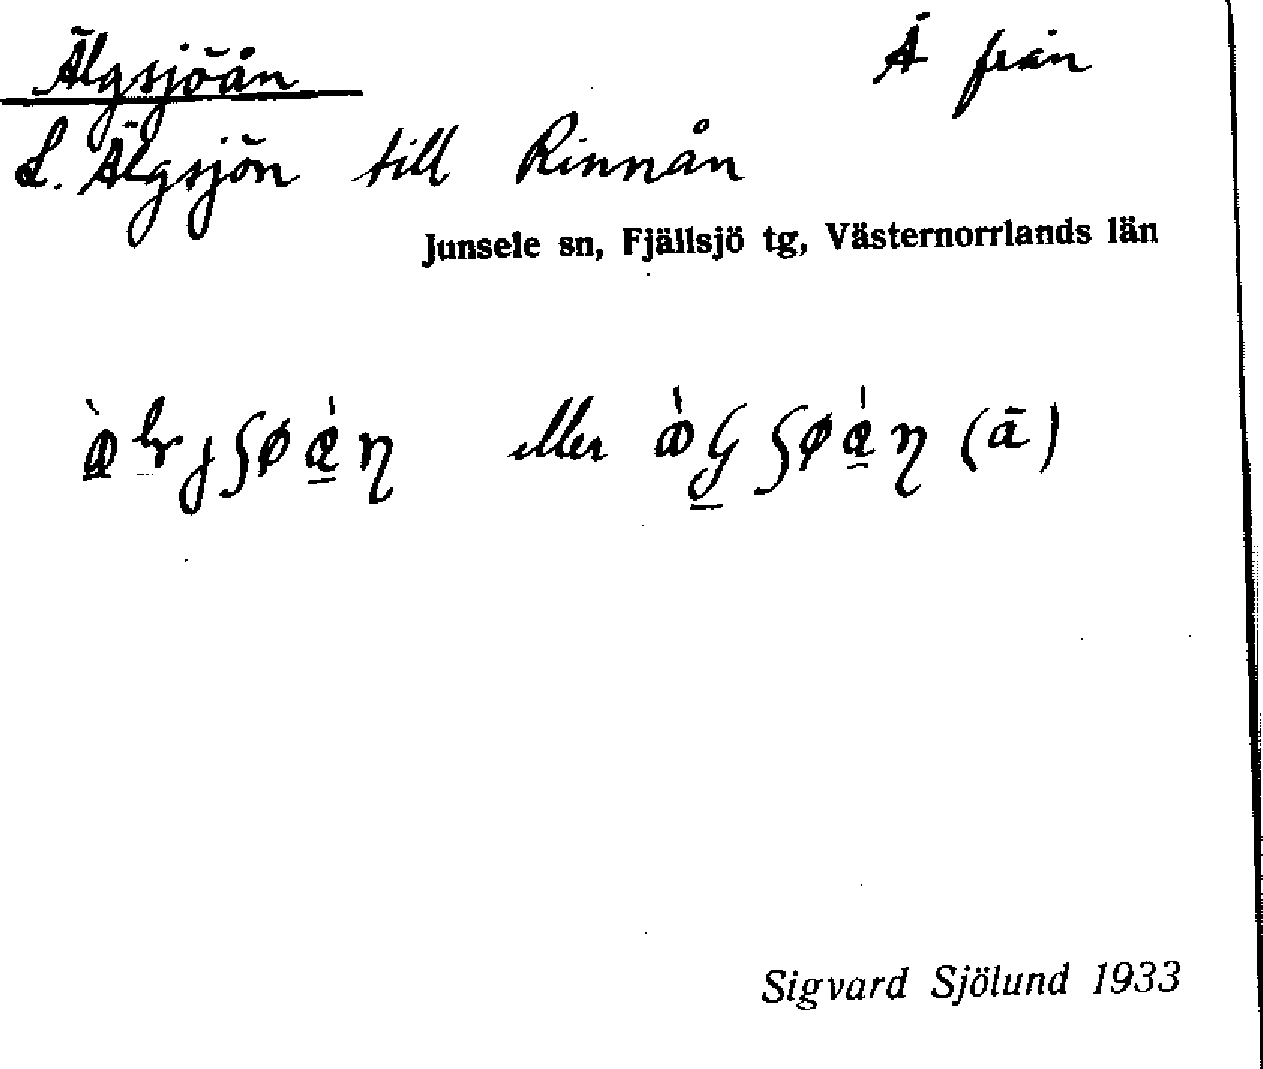 Älgsjöån Å från
L. Älgsjön till Rinnån
Junsele sn, Fjällsjö tg, Västernorrlands län
eller (ā)
Sigvard Sjölund 1933